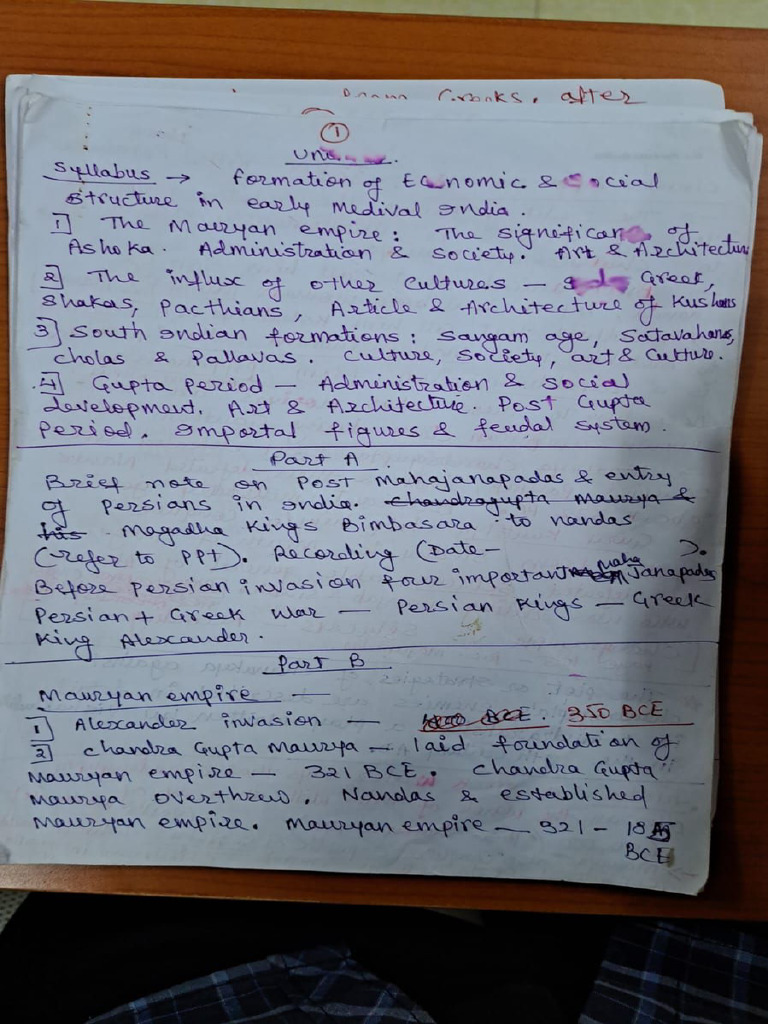 Greeks. after
1
Syllabus → formation of Economic & Social
structure in early Medival India.
1] The Mauryan empire: The significan of
Ashoka. Administration & society. Art & Architecture
2] The influx of other cultures — Greek,
Shakas, Pacthians, Article & Architecture of Kushans
3] South Indian formations: Sangam age, Satavahanas,
cholas & Pallavas. Culture, Society, art & Cutture.
4] Gupta period — Administration & social
development. Art & Architecture. Post Gupta
Period. Importal figures & feudal system.
Part A
Brief note on Post Mahajanapadas & entry
of Persians in India. Chandragupta Maurya &
his Magadha Kings Bimbasara to nandas
(refer to PPT). Recording (Date- ).
Before Persian invasion four important maha Janapadas
Persian + Greek War — Persian Kings — Greek
King Alexander.
Part B
Mauryan empire —
1] Alexander invasion — BCE. 350 BCE
2] Chandra Gupta Maurya — laid foundation of
Mauryan empire — 321 BCE. Chandra Gupta
Maurya overthrew. Nandas & established
Mauryan empire. Mauryan empire — 321 - 185
BCE